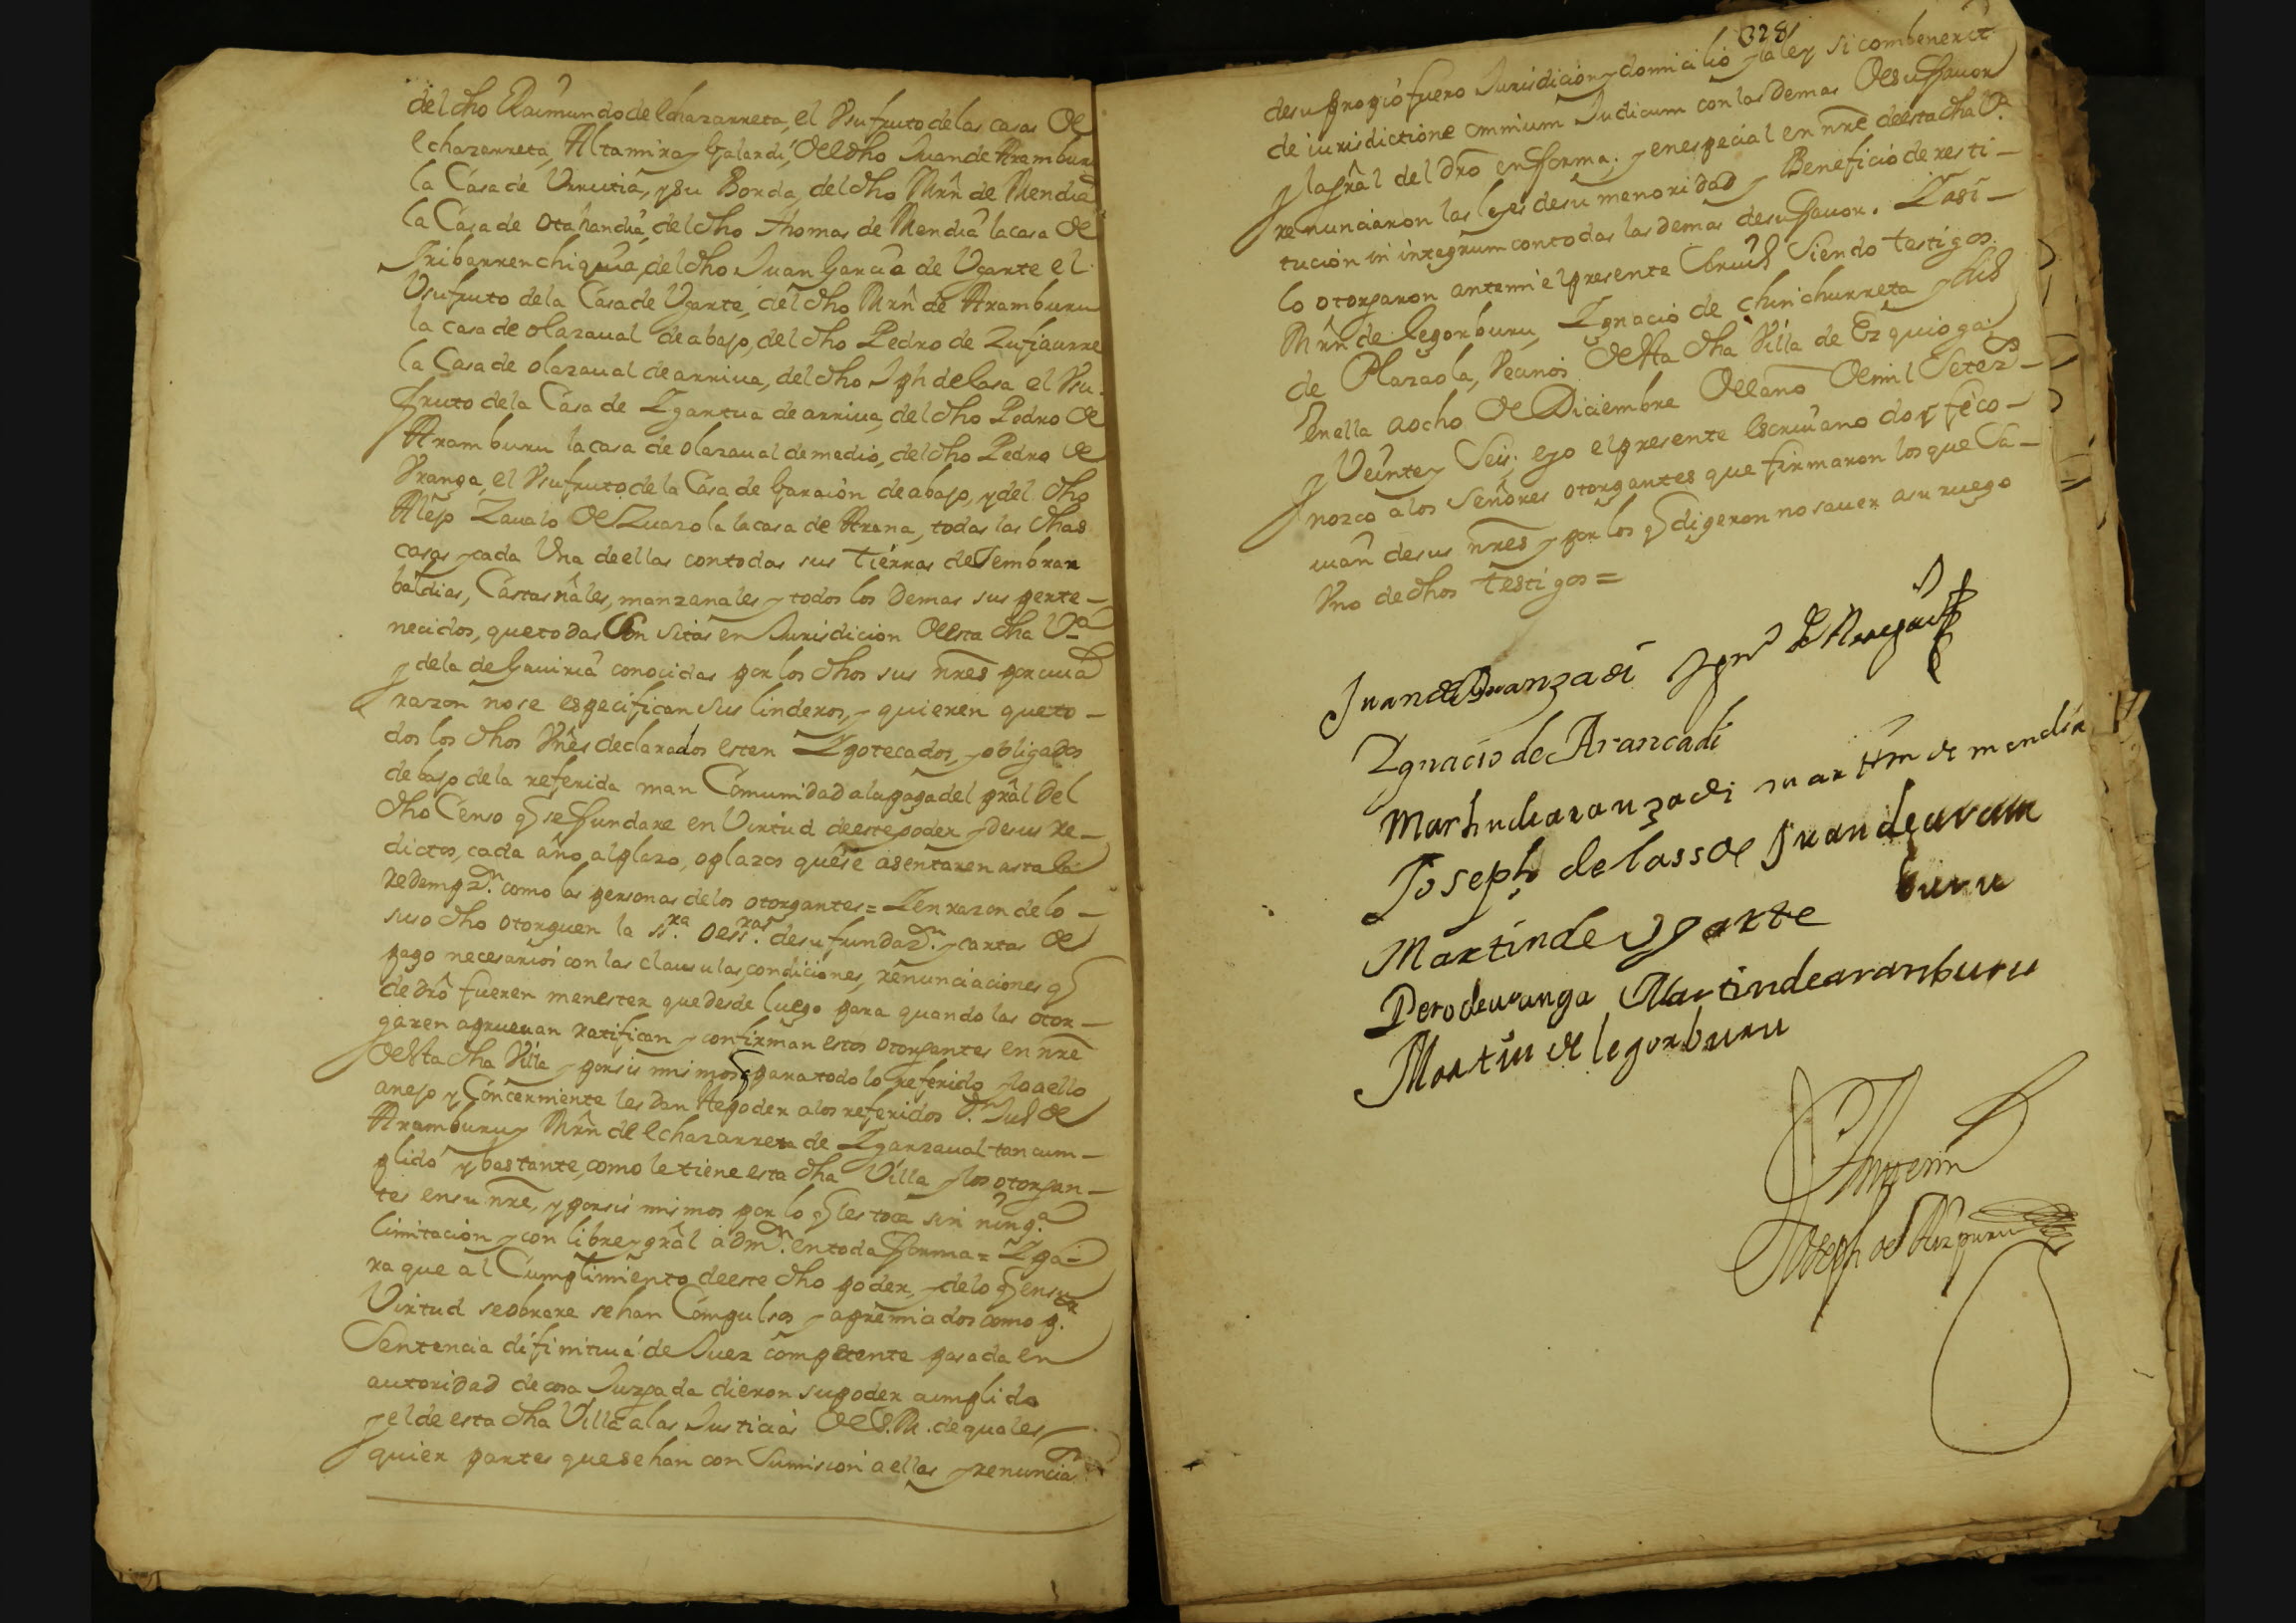 del dho Raimundo de Echazarreta, el Vsufruto de las casas de
echazarreta, Altamira y Galardi, del dho Juan de Aramburu
la Casa de Vrrutia, y su Borda, del dho Mrn de Mendia
la Casa de Otahandia, del dho Thomas de Mendia la casa de
Iribarrenchiquia, del dho Juan Garcia de Vgarte el
Vsufruto dela Casa de Vgarte, del dho Mrn de Aramburu
la casa de olazaual de abajo, del dho Pedro de Zufiaurre
la Casa de olazaual de arriua, del dho Jph de lasa el Vsu-
fruto dela Casa de Ygartua de arriua, del dho Pedro de
Aramburu la casa de olazaual de medio, del dho Pedro de
Vranga, el Vsufruto de la Casa de Garaion de abajo, y del dho
Alejo Zaualo de Zuazola la casa de Arana, todas las dhas
casas y cada Vna de ellas con todas sus tierras de Sembrar
baldias, Castañales, manzanales y todos los Demas sus perte-
necidos, que todas son sitas en Jurisdicion de esta dha Va
y dela de Gauiria conocidas por los dhos sus nres por cuia
razon no se especifican sus linderos, y quieren que to-
dos los dhos Vnes declarados esten Ypotecados, y obligados
debajo dela referida man Comunidad ala paga del pral Del
dho Censo q se fundare en Virtud de este poder y de sus re-
dictos, cada año, al plazo, o plazos que se asentaren asta la
redempzn. como las personas delos otorgantes = Y en razon de lo
suso dho otorguen la ssra. o essras. de su fundazn. y cartas de
pago necesarios con las clausulas, condiciones, renunciaciones q
de dro fueren menester que desde luego para quando las otor-
garen aprueuan ratifican y confirman estos otorgantes en nre
de esta dha Villa y por si mismos q para todo lo referido y lo a ello
anejo y Concerniente les dan este poder a los referidos Dn. Jul de
Aramburu y Mrn de echazarreta de Ygarzaual tan cum-
plido y bastante, como le tiene esta dha Villa y los otorgan-
tes en su nre, y por si mismos por lo q les toca sin ninga.
limitacion y con libre y gral admn. en toda forma = Y pa-
ra que al Cumplimiento de este dho poder, y delo q en su
Virtud se obrare se han Compulsos y apremiados como p.
Sentencia difinitiua de Juez competente pasada en
autoridad de cosa Juzgada dieron su poder cumplido
y el de esta dha Villa a las Justicias de S. M. de quales-
quier partes que se han con Sumision a ellas y renuncian
328
de su propio fuero Jurisdicion y domicilio y la ley si combenerit
de iurisdictione omnium Judicum con las Demas de su fauor
y la gral del dro en forma; y en especial en nre de esta dha Va.
renunciaron las leyes de su menoridad y Beneficio de resti-
tucion in integrum con todas las demas de su fauor. Y asi-
lo otorgaron ante mi el presente Escriuo Siendo testigos.
Mrn de legorburu, Ygnacio de chinchurreta y
de Plazaola, Vecinos de esta dha Villa de Ezquioga
en ella a ocho de Diciembre del año de mil Setezs
y Veinte y Seis; e yo el presente escriuano doy fe co-
nozco a los Señores otorgantes que firmaron los que sa-
uian de sus nres y por los q digeron no sauer a su ruego
Vno de dhos testigos =
Juan de Aranzadi
Ygnacio de Arancadi
Martin de aranzadi martin de mendia
Joseph de lassa Juan de aram
buru
Martin de Vgarte
Pero de uranga Martin de aranburu
Martin de legorburu
Ante mi
Joseph de Aizpuru